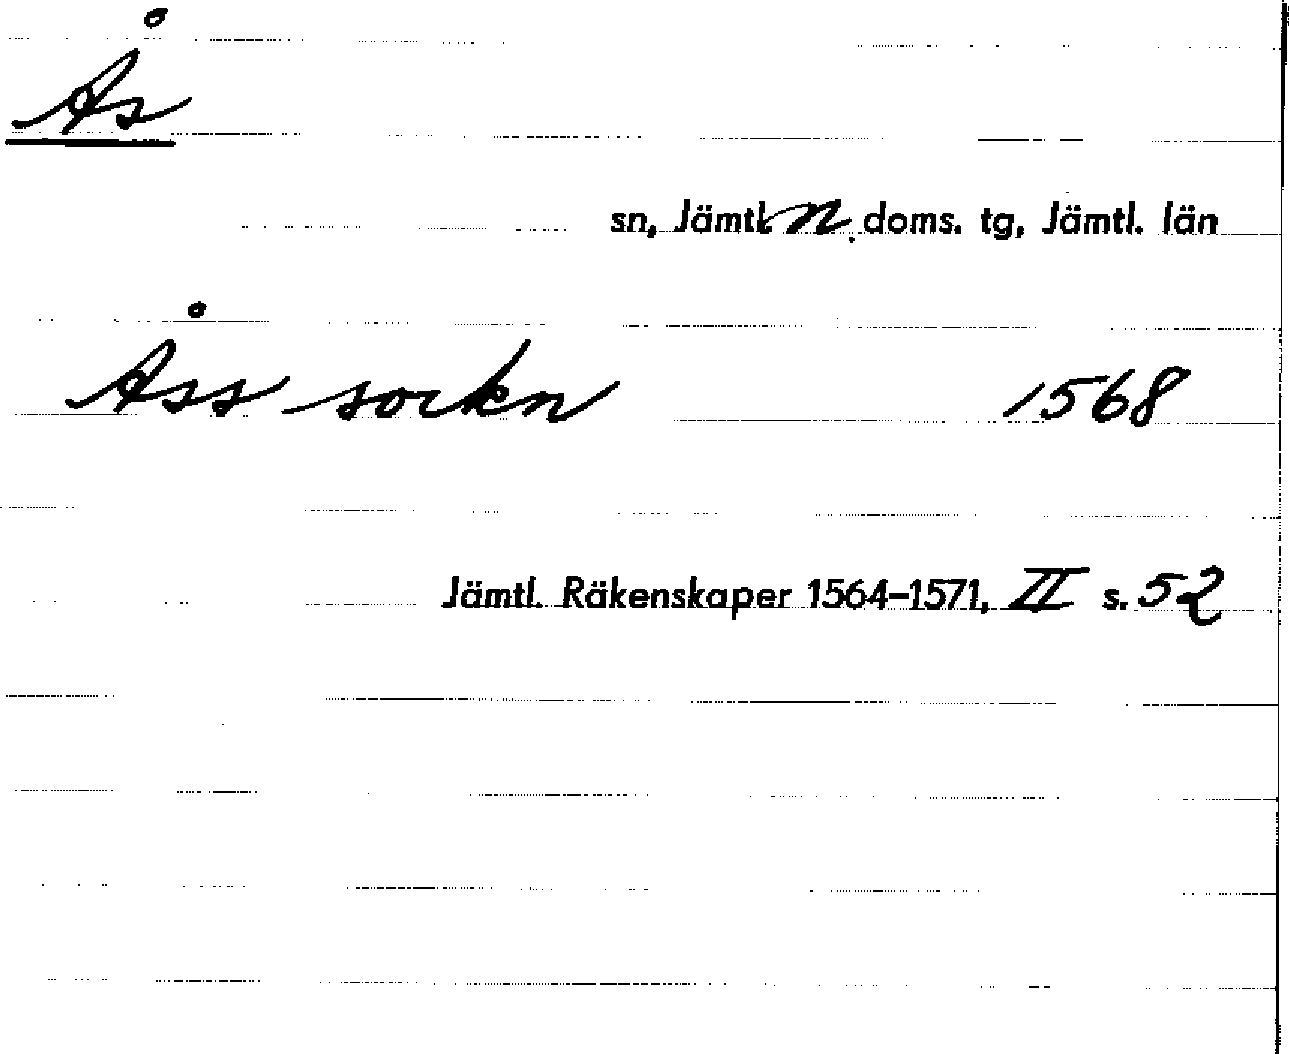 Ås
sn, Jämtl. n. doms. tg, Jämtl. län
Åss sockn 1568
Jämtl. Räkenskaper 1564–1571, II s. 52